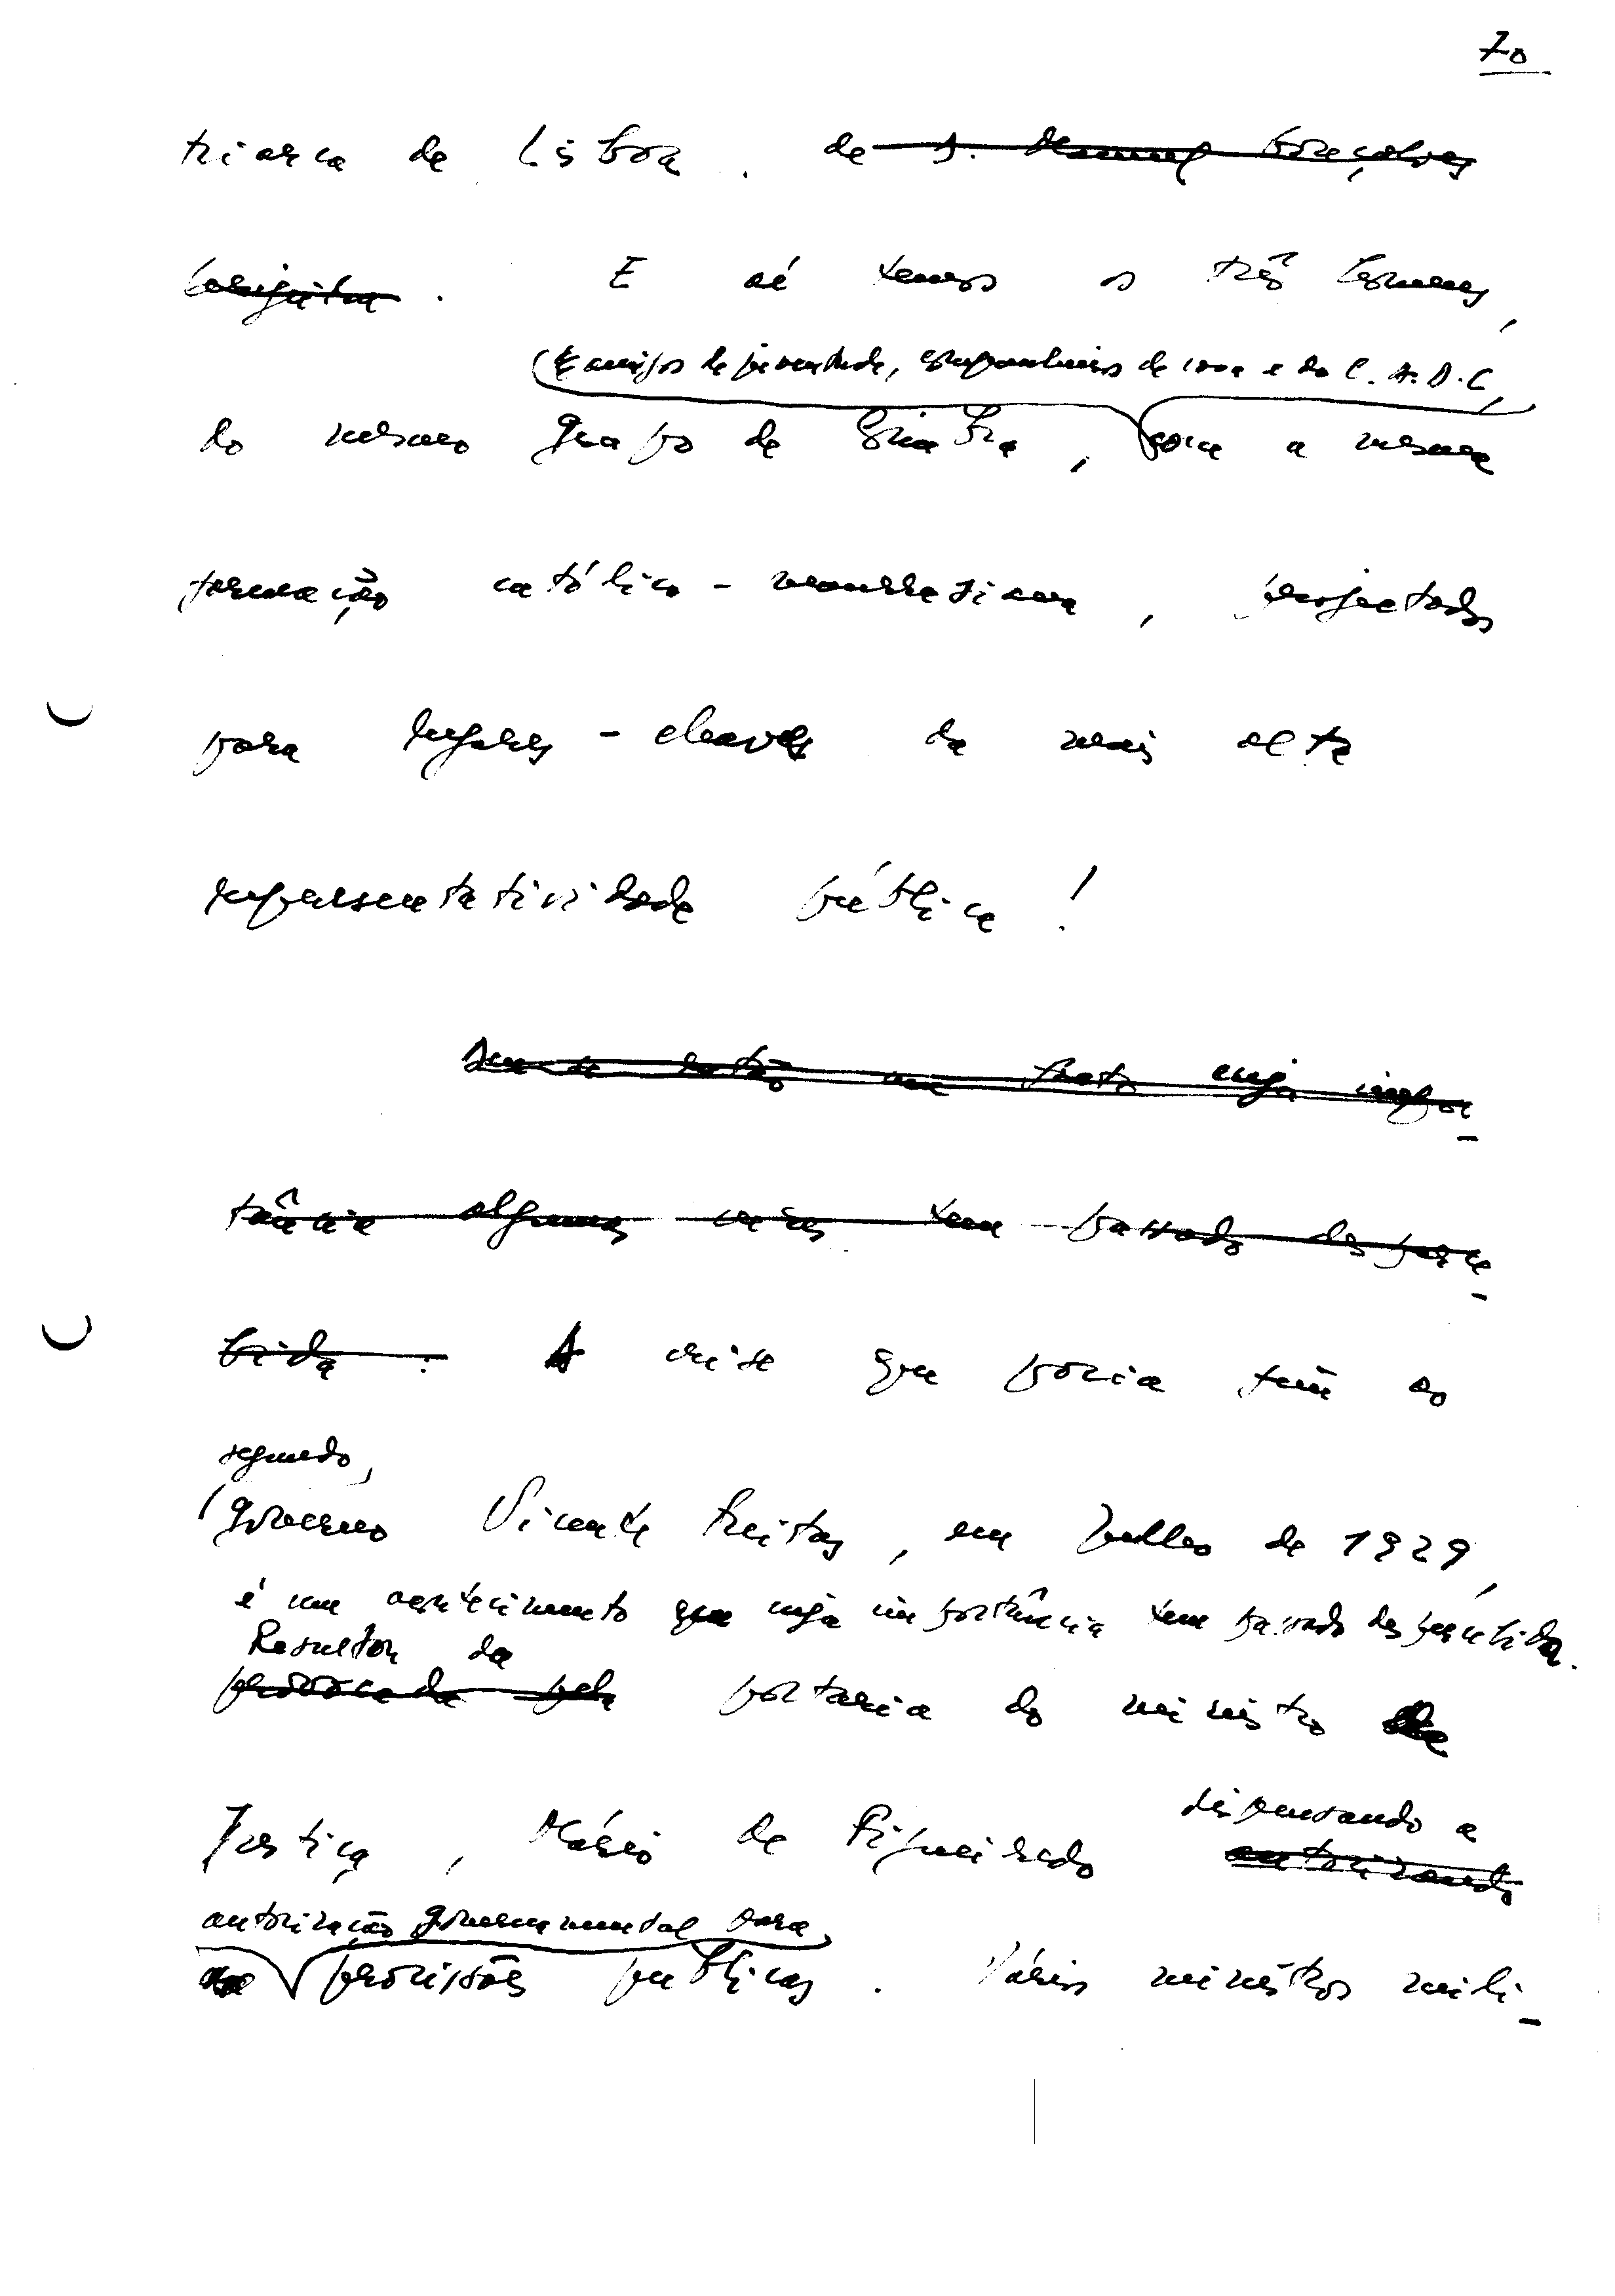 70
triarca de Lisboa. de D. Manuel Gonçalves
Cerejeira. E aí temos os três homens,
amigos de juventude, companheiros de casa e do C.A.D.C,
do mesmo grupo de Coimbra, com a mesma
formação católico-monárquica, projectados
para lugares-chaves da mais alta
representatividade pública!
Deu-se então um facto cuja impor-
tância algumas vezes tem passado desperce-
bida. A crise que poria fim ao
segundo,
governo Vicente Freitas, em Julho de 1929,
é um acontecimento que cuja importância tem passado despercebida.
Resultou da
provocada pela portaria do ministro da
Justiça, Mário de Figueiredo
dispensando a
autorizando
autorização governamental para
as procissões publicas. Vários ministros mili-